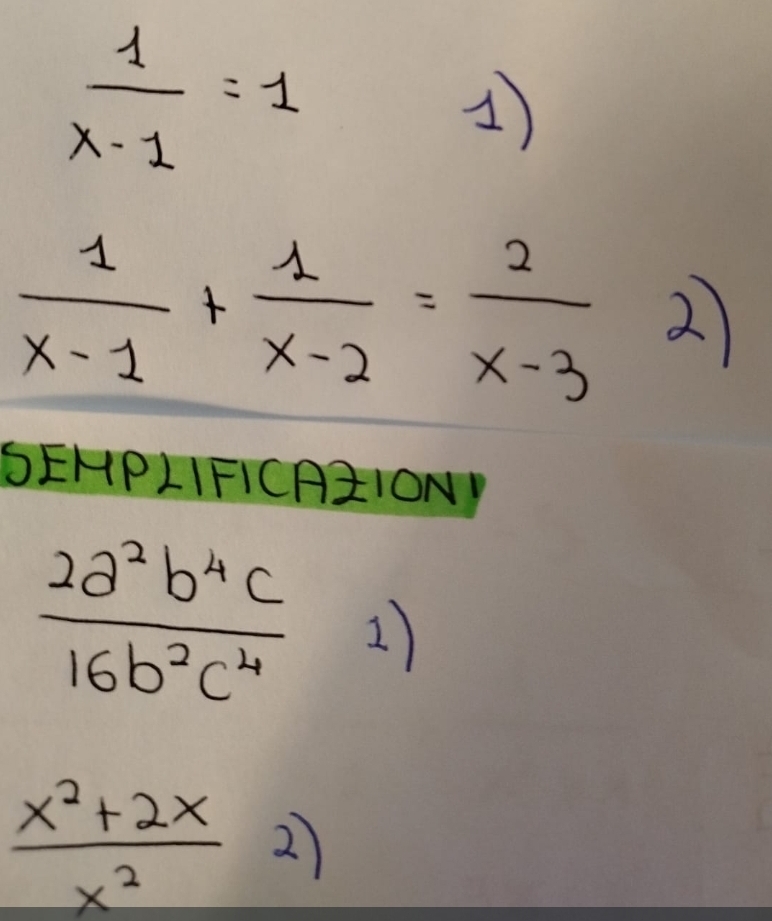 1/(x-1) = 1 1)
1/(x-1) + 1/(x-2) = 2/(x-3) 2)
SEMPLIFICAZIONI
2a²b⁴c/16b²c⁴ 1)
(x²+2x)/x² 2)